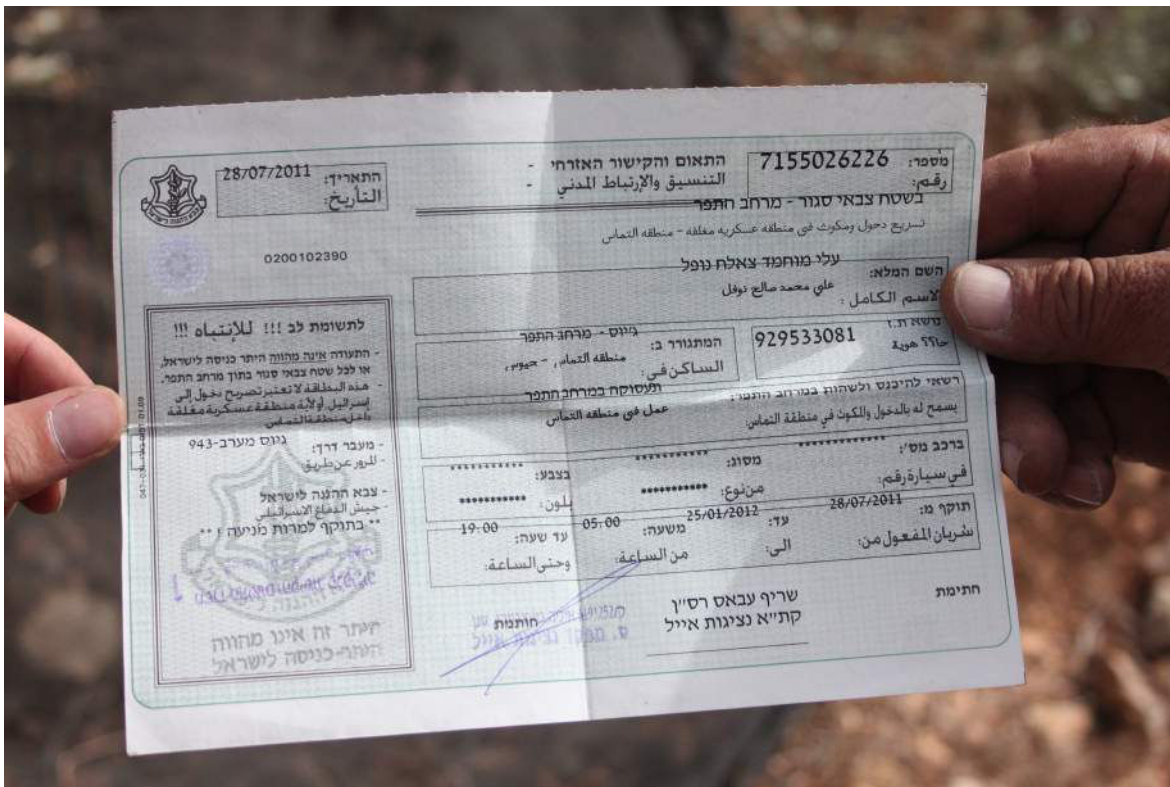 מספר: 7155026226
رقم:
התאום והקישור האזרחי -
التنسيق والإرتباط المدني -
התאריך: 28/07/2011
التأريخ:
בשטח צבאי סגור - מרחב התפר
تسريح دخول ومكوث في منطقه عسكريه مغلقه - منطقه التماس
0200102390
עלי מוחמד צאלח נופל
השם המלא:
علي محمد صالح نوفل
الاسم الكامل:
משא ת.ז 929533081
هوية
ג'יוס - מרחב התפר
המתגורר ב:
منطقه التماس - جيوس,
الساكن في:
רשאי להיכנס ולשהות במרחב התפר: תעסוקה במרחב התפר
يسمح له بالدخول وللكوث في منطقة التماس: عمل في منطقه التماس
ברכב מס': ************ מסוג: *********** בצבע: ***********
في سيارة رقم: من نوع: *********** بلون: ***********
תוקף מ: 28/07/2011 עד: 25/01/2012 משעה: 05:00 עד שעה: 19:00
سريان المفعول من: الى: من الساعة: وحتى الساعة:
חתימת
שריף עבאס רס"ן
קת"א נציגות אייל
חותמת
לתשומת לב !!! للإنتباه !!!
- התעודה אינה מהווה היתר כניסה לישראל,
או לכל שטח צבאי סגור בתוך מרחב התפר.
- هذه البطاقة لا تعتبر تصريح دخول إلى
إسرائيل أو لأية منطقة عسكرية مغلقة
داخل منطقة التماس
- מעבר דרך: גיוס מערב-943
- المرور عن طريق:
- צבא ההגנה לישראל
جيش الدفاع الاسرائيلي
** בתוקף למרות מניעה **
היתר זה אינו מהווה
היתר-כניסה לישראל